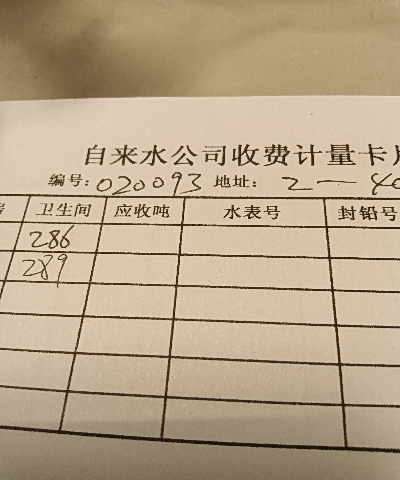 自来水公司收费计量卡
编号: 020093 地址: 2-40
卫生间 应收吨 水表号 封铅号
286
289